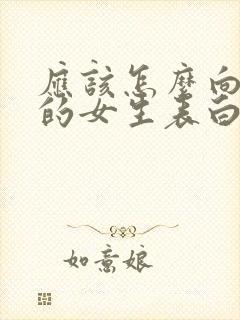 應該怎麼向
的女生表白
如意娘